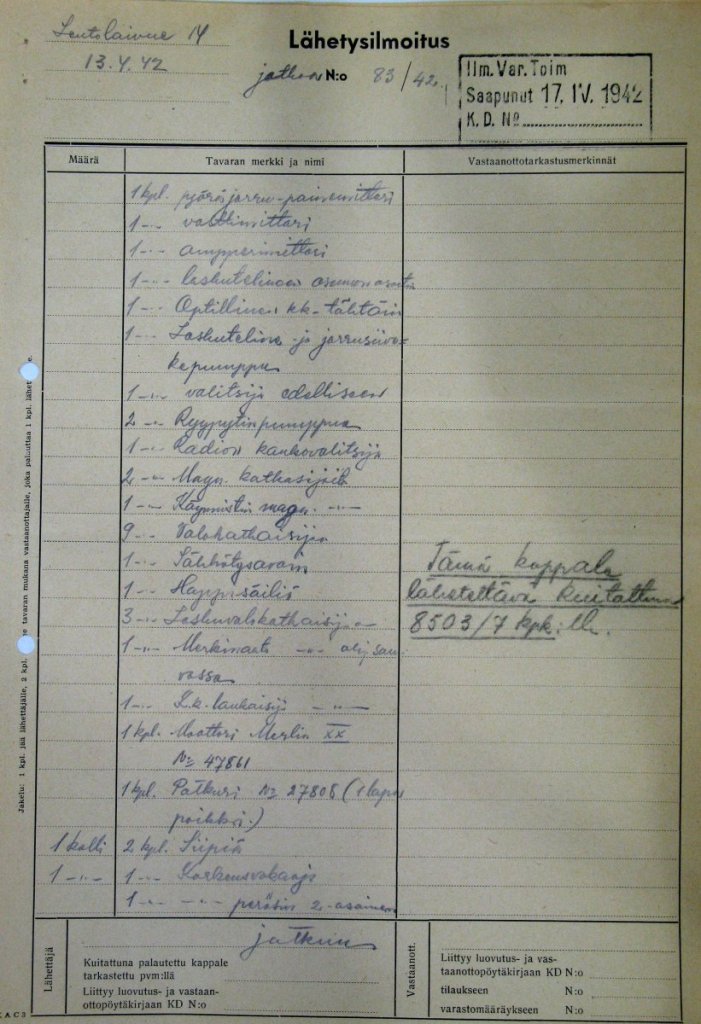 Lentolaivue 14
13.4.42
Lähetysilmoitus
jatkoa N:o 83/42
Ilm. Var. Toim
Saapunut 17. IV. 1942
K. D. No
Määrä
Tavaran merkki ja nimi
Vastaanottotarkastusmerkinnät
1 kpl. pyöräjarru-painemittari
1 -"- volttimittari
1 -"- ampperimittari
1 -"- laskutelineen asennon
1 -"- Optillinen kk-tähtäin
1 -"- Laskuteline- ja jarru
kepumppu
1 -"- valitsija edelliseen
2 -"- Ryypytinpumppua
1 -"- Radion kaukovalitsija
2 -"- Magn. katkaisijaa
1 -"- Käynnistin magn. -"-
9 -"- Valokatkaisijaa
1 -"- Sähkötysavain
1 -"- Happisäiliö
3 -"- Laskuvalokatkaisijaa
1 -"- -"- ohjsau-
vassa
1 -"- K.k. laukaisija -"-
1 kpl. Moottori Merlin XX
No 47861
1 kpl. Potkuri No 27808 (1 lapa
poikki.)
1 kolli 2 kpl. Siipiä
1 -"- 1 -"- Korkeusvakaaja
1 -"- -"- peräsin 2-osainen
Tämä kappale
lähetettävä kuitattuna
8503/7 kpk:lle.
Jakelu: 1 kpl. jää lähettäjälle, 2 kpl. tavaran mukana vastaanottajalle, joka palauttaa 1 kpl. lähet
jatkuu
Lähettäjä
Kuitattuna palautettu kappale
tarkastettu pvm:llä
Liittyy luovutus- ja vastaan-
ottopöytäkirjaan KD N:o
Vastaanott.
Liittyy luovutus- ja vas-
taanottopöytäkirjaan KD N:o
tilaukseen N:o
varastomääräykseen N:o